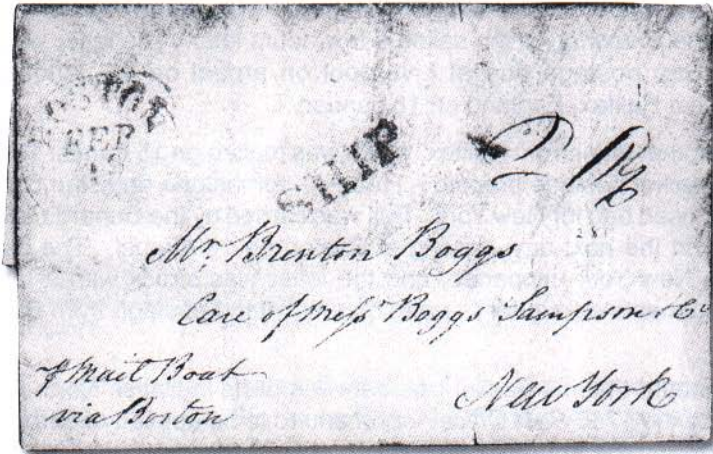 BOSTON
FEB
SHIP
Mr. Brenton Boggs
Care of Messrs Boggs Sampson & Co
New York
p Mail Boat
via Boston